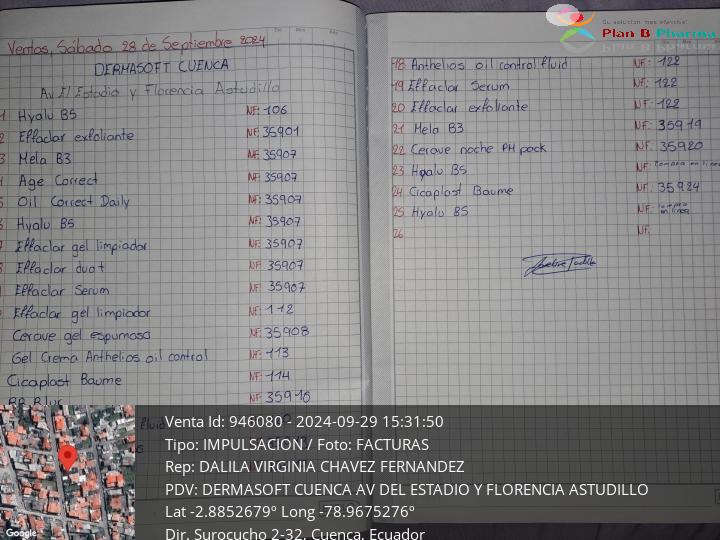 Ventas, Sábado 28 de Septiembre 2024
DERMASOFT CUENCA
Av El Estadio y Florencia Astudillo
1 Hyalu B5 NF: 106
2 Effaclar exfoliante NF: 35901
3 Mela B3 NF: 35907
Age Correct NF: 35907
Oil Correct Daily NF: 35907
Hyalu B5 NF: 35907
Effaclar gel limpiador NF: 35907
Effaclar duo+ NF: 35907
Effaclar Serum NF: 35907
Effaclar gel limpiador NF: 112
Cerave gel espumoso NF: 35908
Gel Crema Anthelios oil control NF: 113
Cicaplast Baume NF: 114
BB Blur NF: 35910
fluid
18 Anthelios oil control fluid NF: 122
19 Effaclar Serum NF: 122
20 Effaclar exfoliante NF: 122
21 Mela B3 NF: 35919
22 Cerave noche PM pack NF: 35920
23 Hyalu B5 NF: Compra en linea
24 Cicaplast Baume NF: 35924
25 Hyalu B5 NF: Compra en linea
26 NF:
Su solución más efectiva!
Plan B Pharma
Venta Id: 946080 - 2024-09-29 15:31:50
Tipo: IMPULSACION / Foto: FACTURAS
Rep: DALILA VIRGINIA CHAVEZ FERNANDEZ
PDV: DERMASOFT CUENCA AV DEL ESTADIO Y FLORENCIA ASTUDILLO
Lat -2.8852679º Long -78.9675276º
Dir. Surocucho 2-32, Cuenca, Ecuador
Google